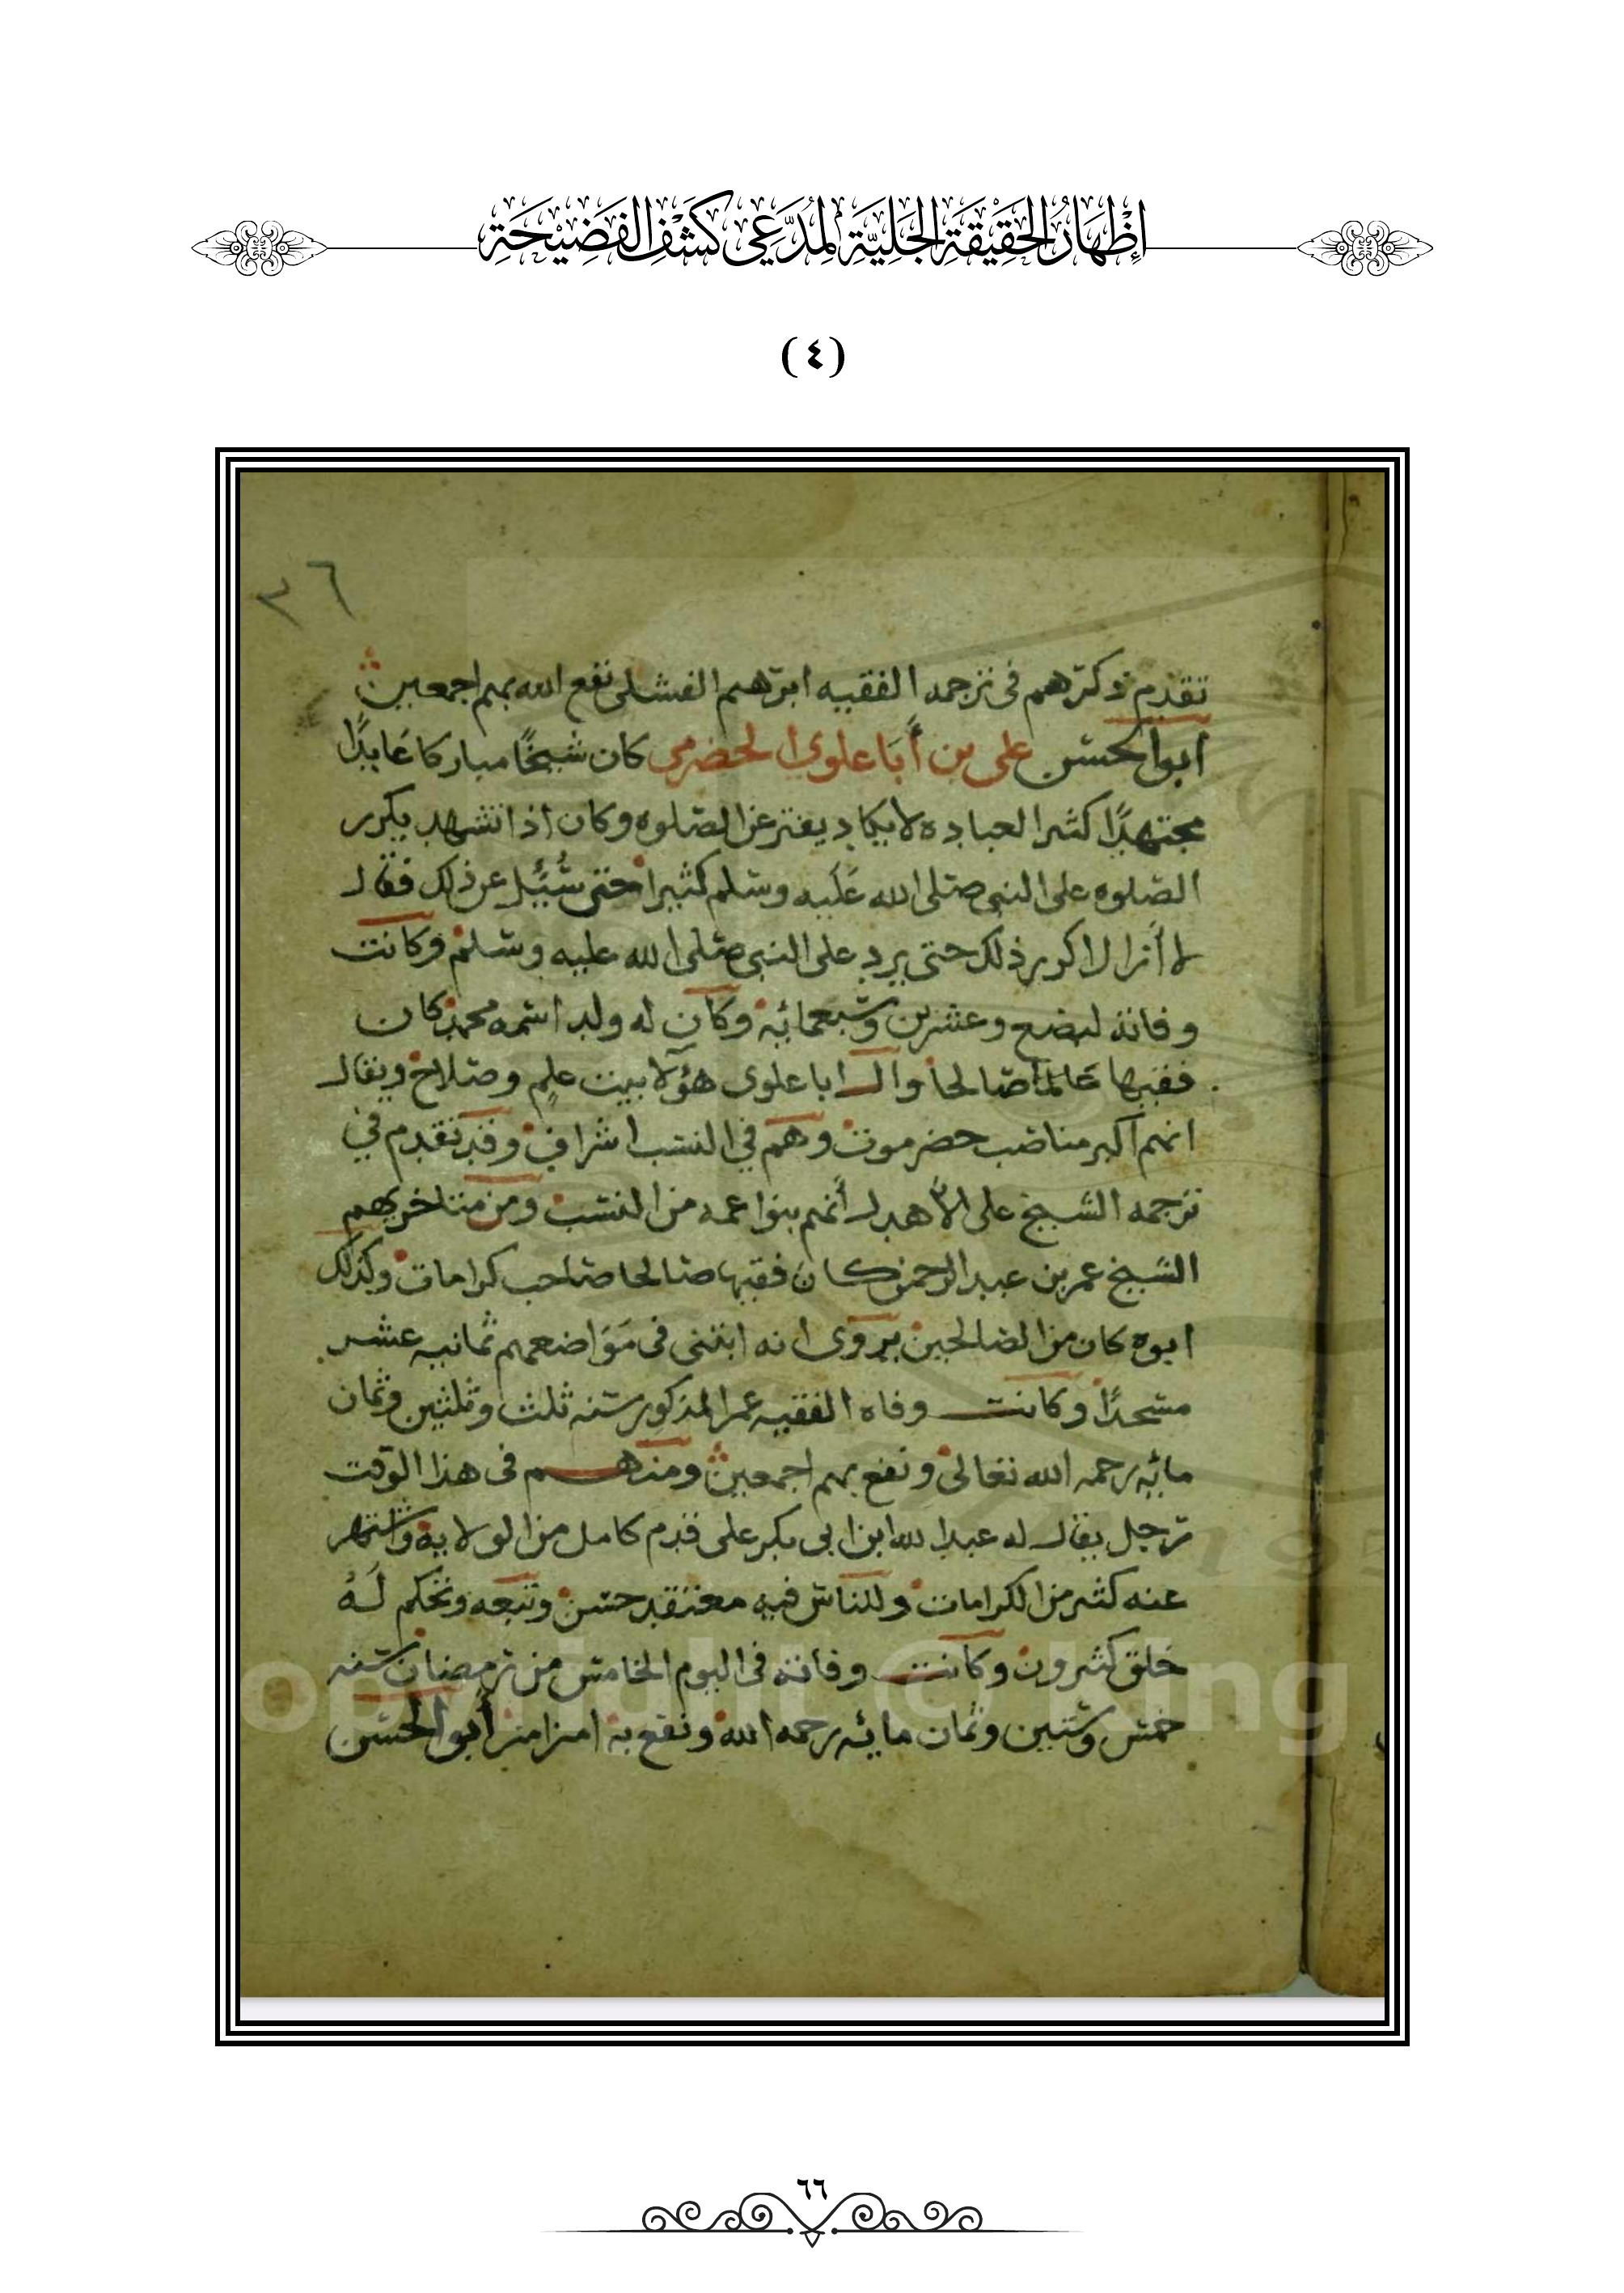 إِظْهَارُ الحَقِيْقَةِ الجَلِيَّةِ لِمُدَّعِي كَشْفِ الفَضِيْحَةِ
(٤)
٣٦
تقدم ذكرهم فى ترجمه الفقيه ابرهيم الفشلى نفع الله بهم اجمعين
ابوالحسن على بن أبا علوي الحضرمي كان شيخًا مباركا عَابدًا
مجتهدًا كثير العباده لا يكاد يفتر عن الصلوه وكان اذا تشهد يكرر
الصلوه على النبى صلى الله عَليه وسلم كثيرا حتى سُئِل عن ذلك فقال
لا أزال اكرر ذلك حتى يرد على النبى صلى الله عليه وسلم وكانت
وفاته لبضع وعشرين وسبعمائه وكان له ولد اسمه محمد كان
فقيها عَالما صالحا وال ابا علوى هؤلا بيت علم وصلاح ويقال
انهم اكبر مناصب حضرموت وهم في النسب اشراف وقد تقدم في
ترجمه الشيخ على الأهدل أنهم بنوا عمه من النسب ومن متاخريهم
الشيخ عمر بن عبد الرحمن كان فقيها صالحا صاحب كرامات وكذلك
ابوه كان من الصالحين يروى انه ابتنى فى مَوَاضعهم ثمانيه عشر
مسجدًا وكانت وفاه الفقيه عمر المذكور سنه ثلث وثلثين وثمان
مائه رحمه الله تعالى ونفع بهم اجمعين ومنهم فى هذا الوقت
رجل يقال له عبد الله ابن ابى بكر على قدم كامل من الولاية واشتهر
عنه كثير من الكرامات وللناس فيه معتقد حسن وتبعه وتحكم لَهُ
خلق كثيرون وكانت وفاته فى اليوم الخامس من رمضان سنه
خمس وستين وثمان مائه رحمه الله ونفع به امين امين أبوالحسن
opyright © King
٦٦